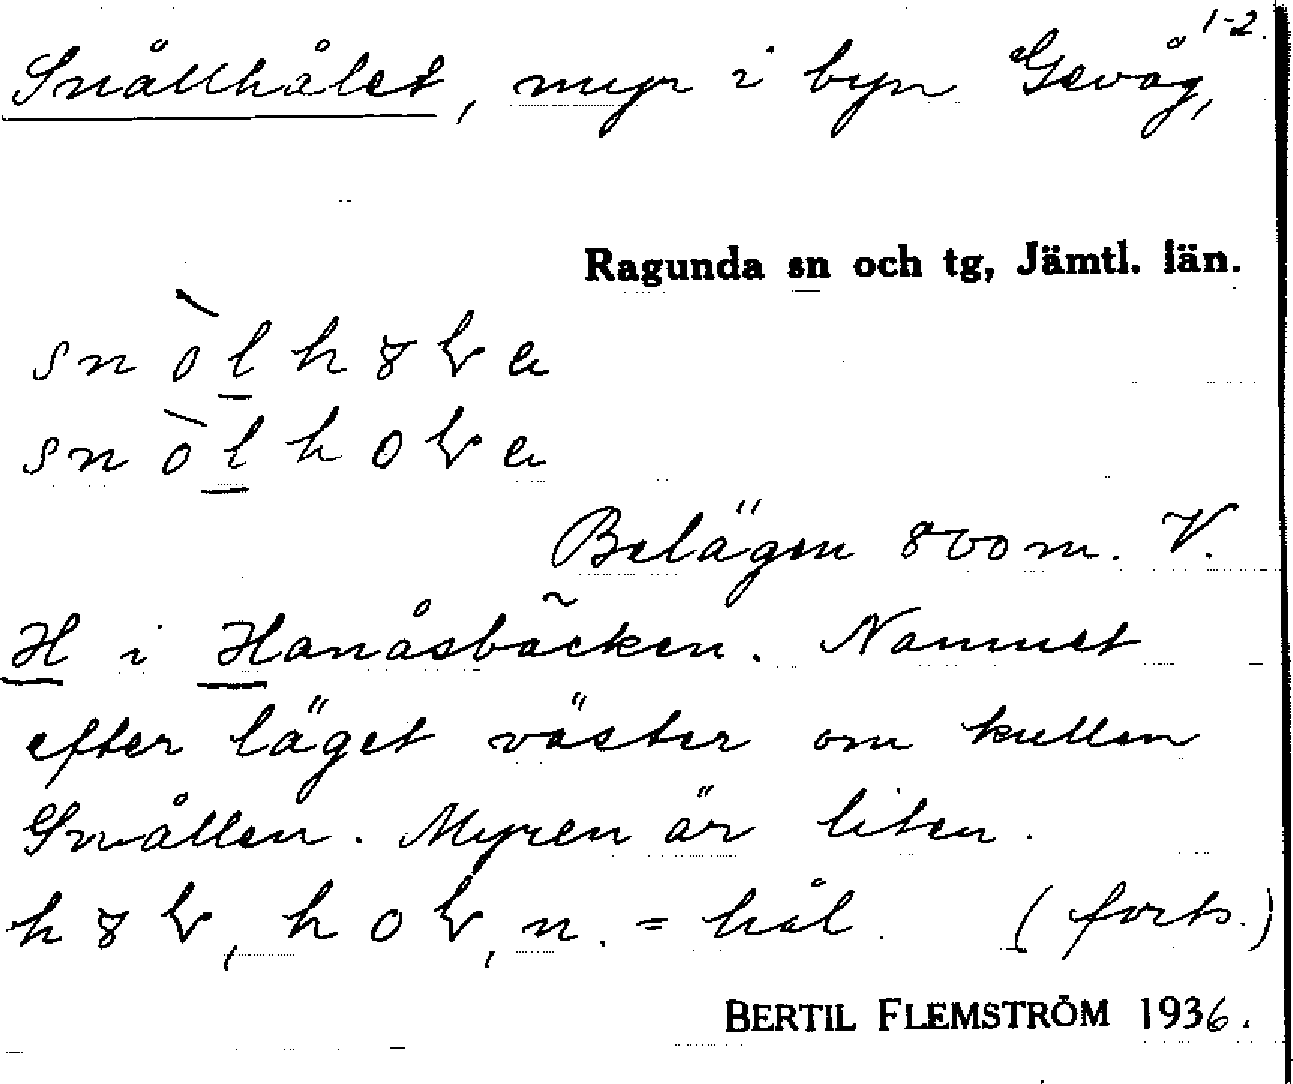 1-2.
Snållhålet, myr i byn Gevåg,
Ragunda sn och tg, Jämtl. län.
Belägen 800 m. V.
H i Hanåsbäcken. Namnet
efter läget väster om kullen
Snållen. Myren är liten.
n. = hål. (forts.)
BERTIL FLEMSTRÖM 1936.